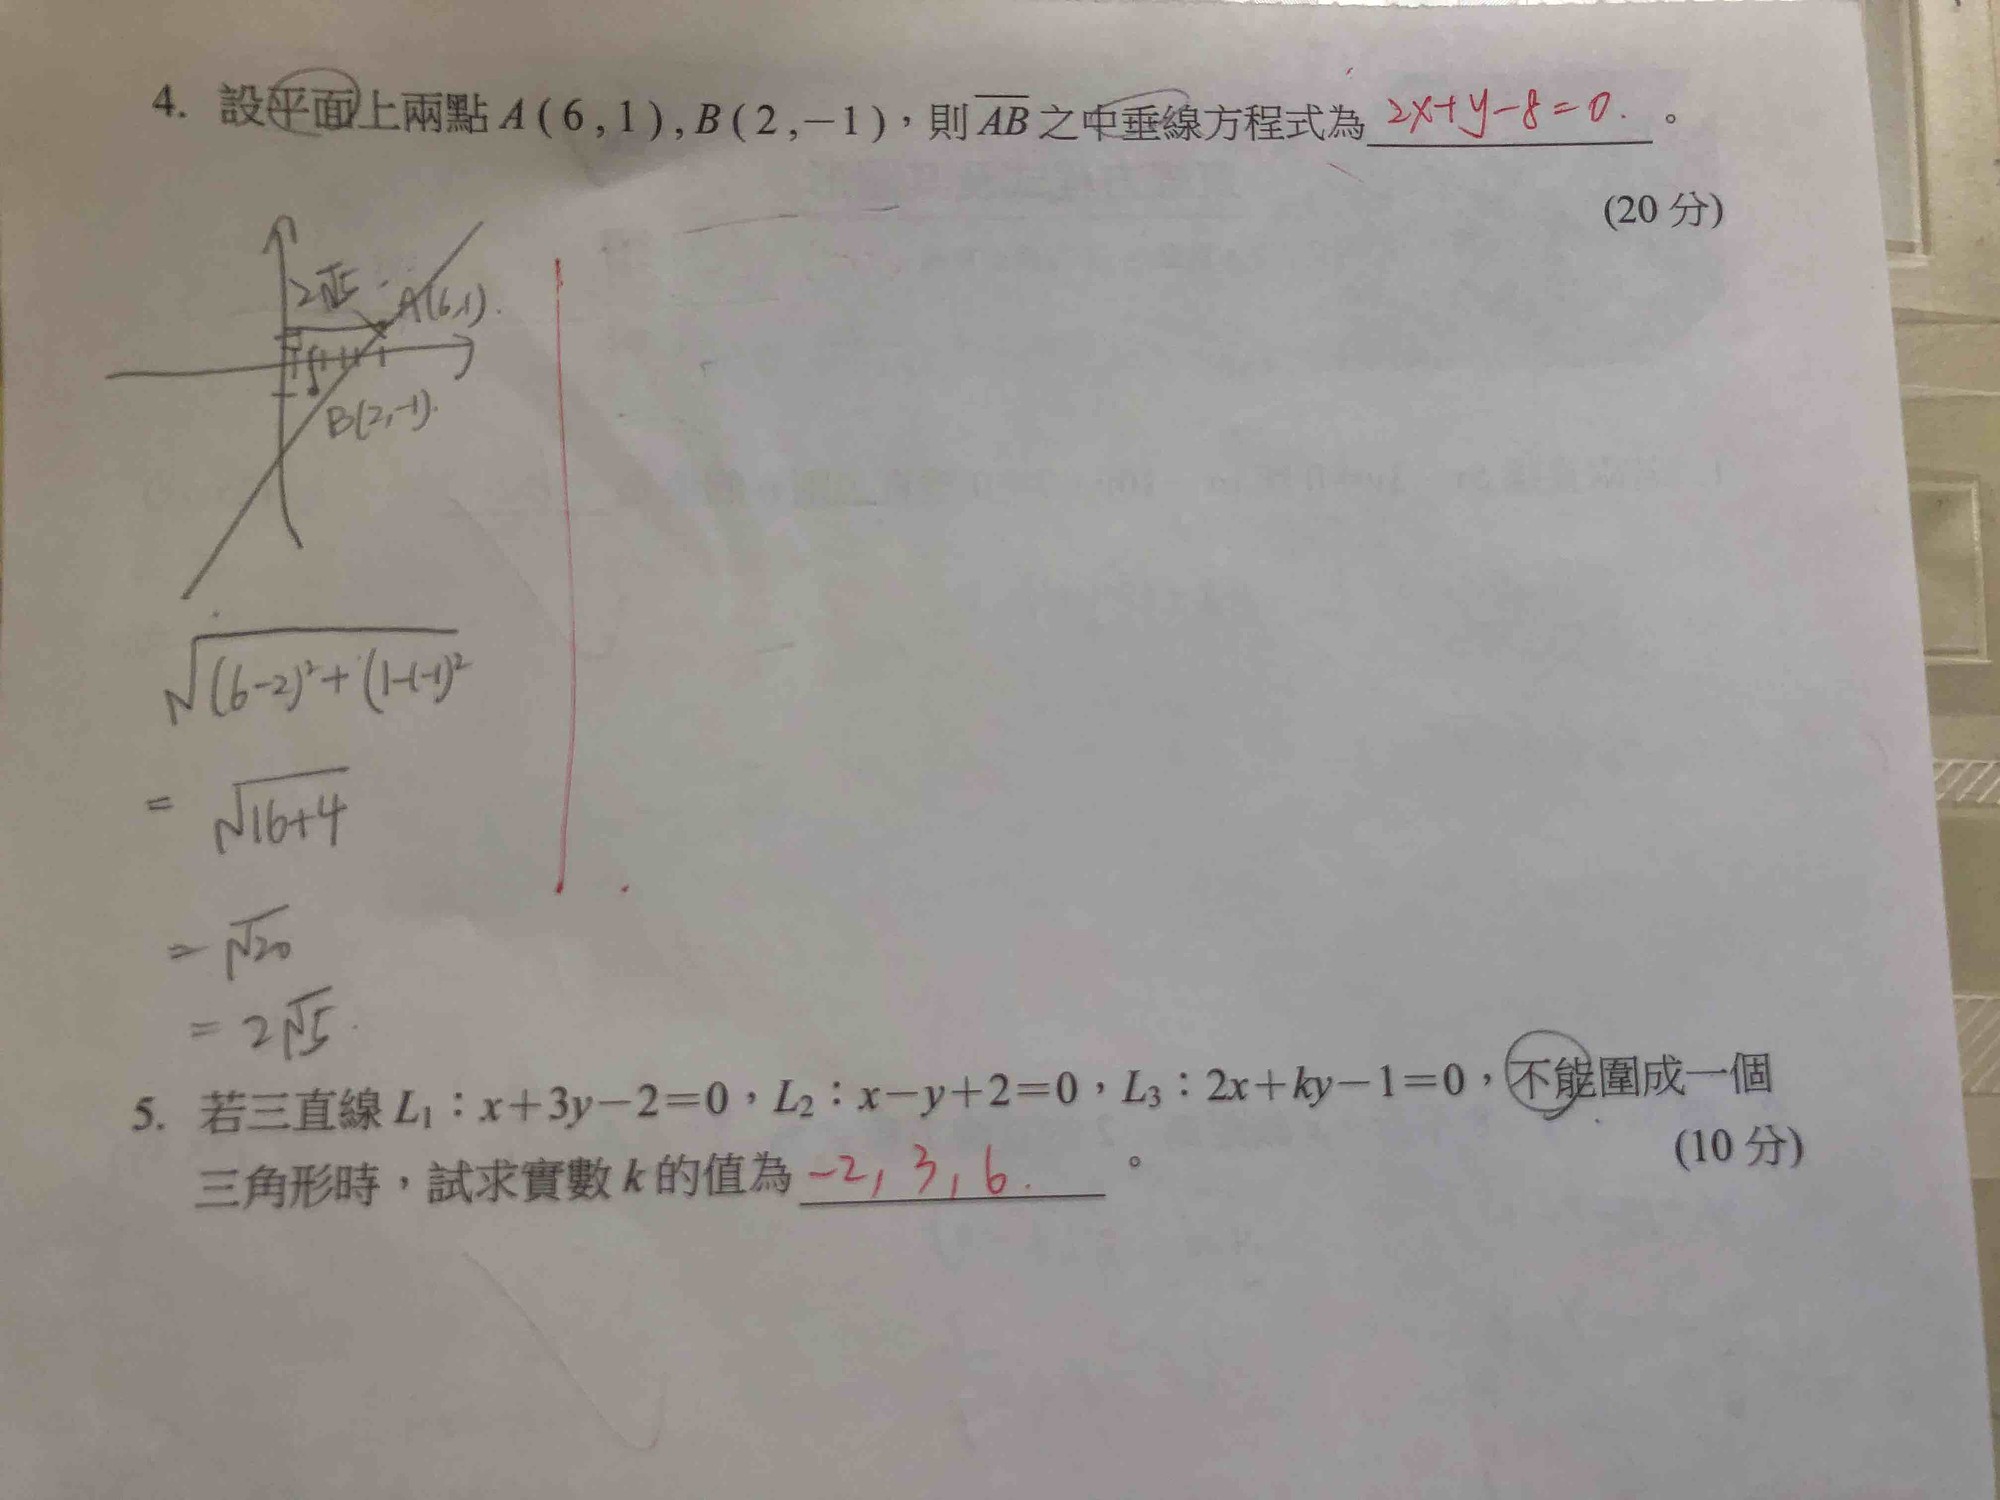 4. 設平面上兩點 A(6,1),B(2,-1),則 AB 之中垂線方程式為 2x+y-8=0. 。
(20 分)
2√5
A(6,1).
B(2,-1).
√(6-2)²+(1-(-1)²
= √16+4
= √20
= 2√5.
5. 若三直線 L₁:x+3y-2=0,L₂:x-y+2=0,L₃:2x+ky-1=0,不能圍成一個
三角形時,試求實數 k 的值為 -2, 3, 6. 。
(10 分)